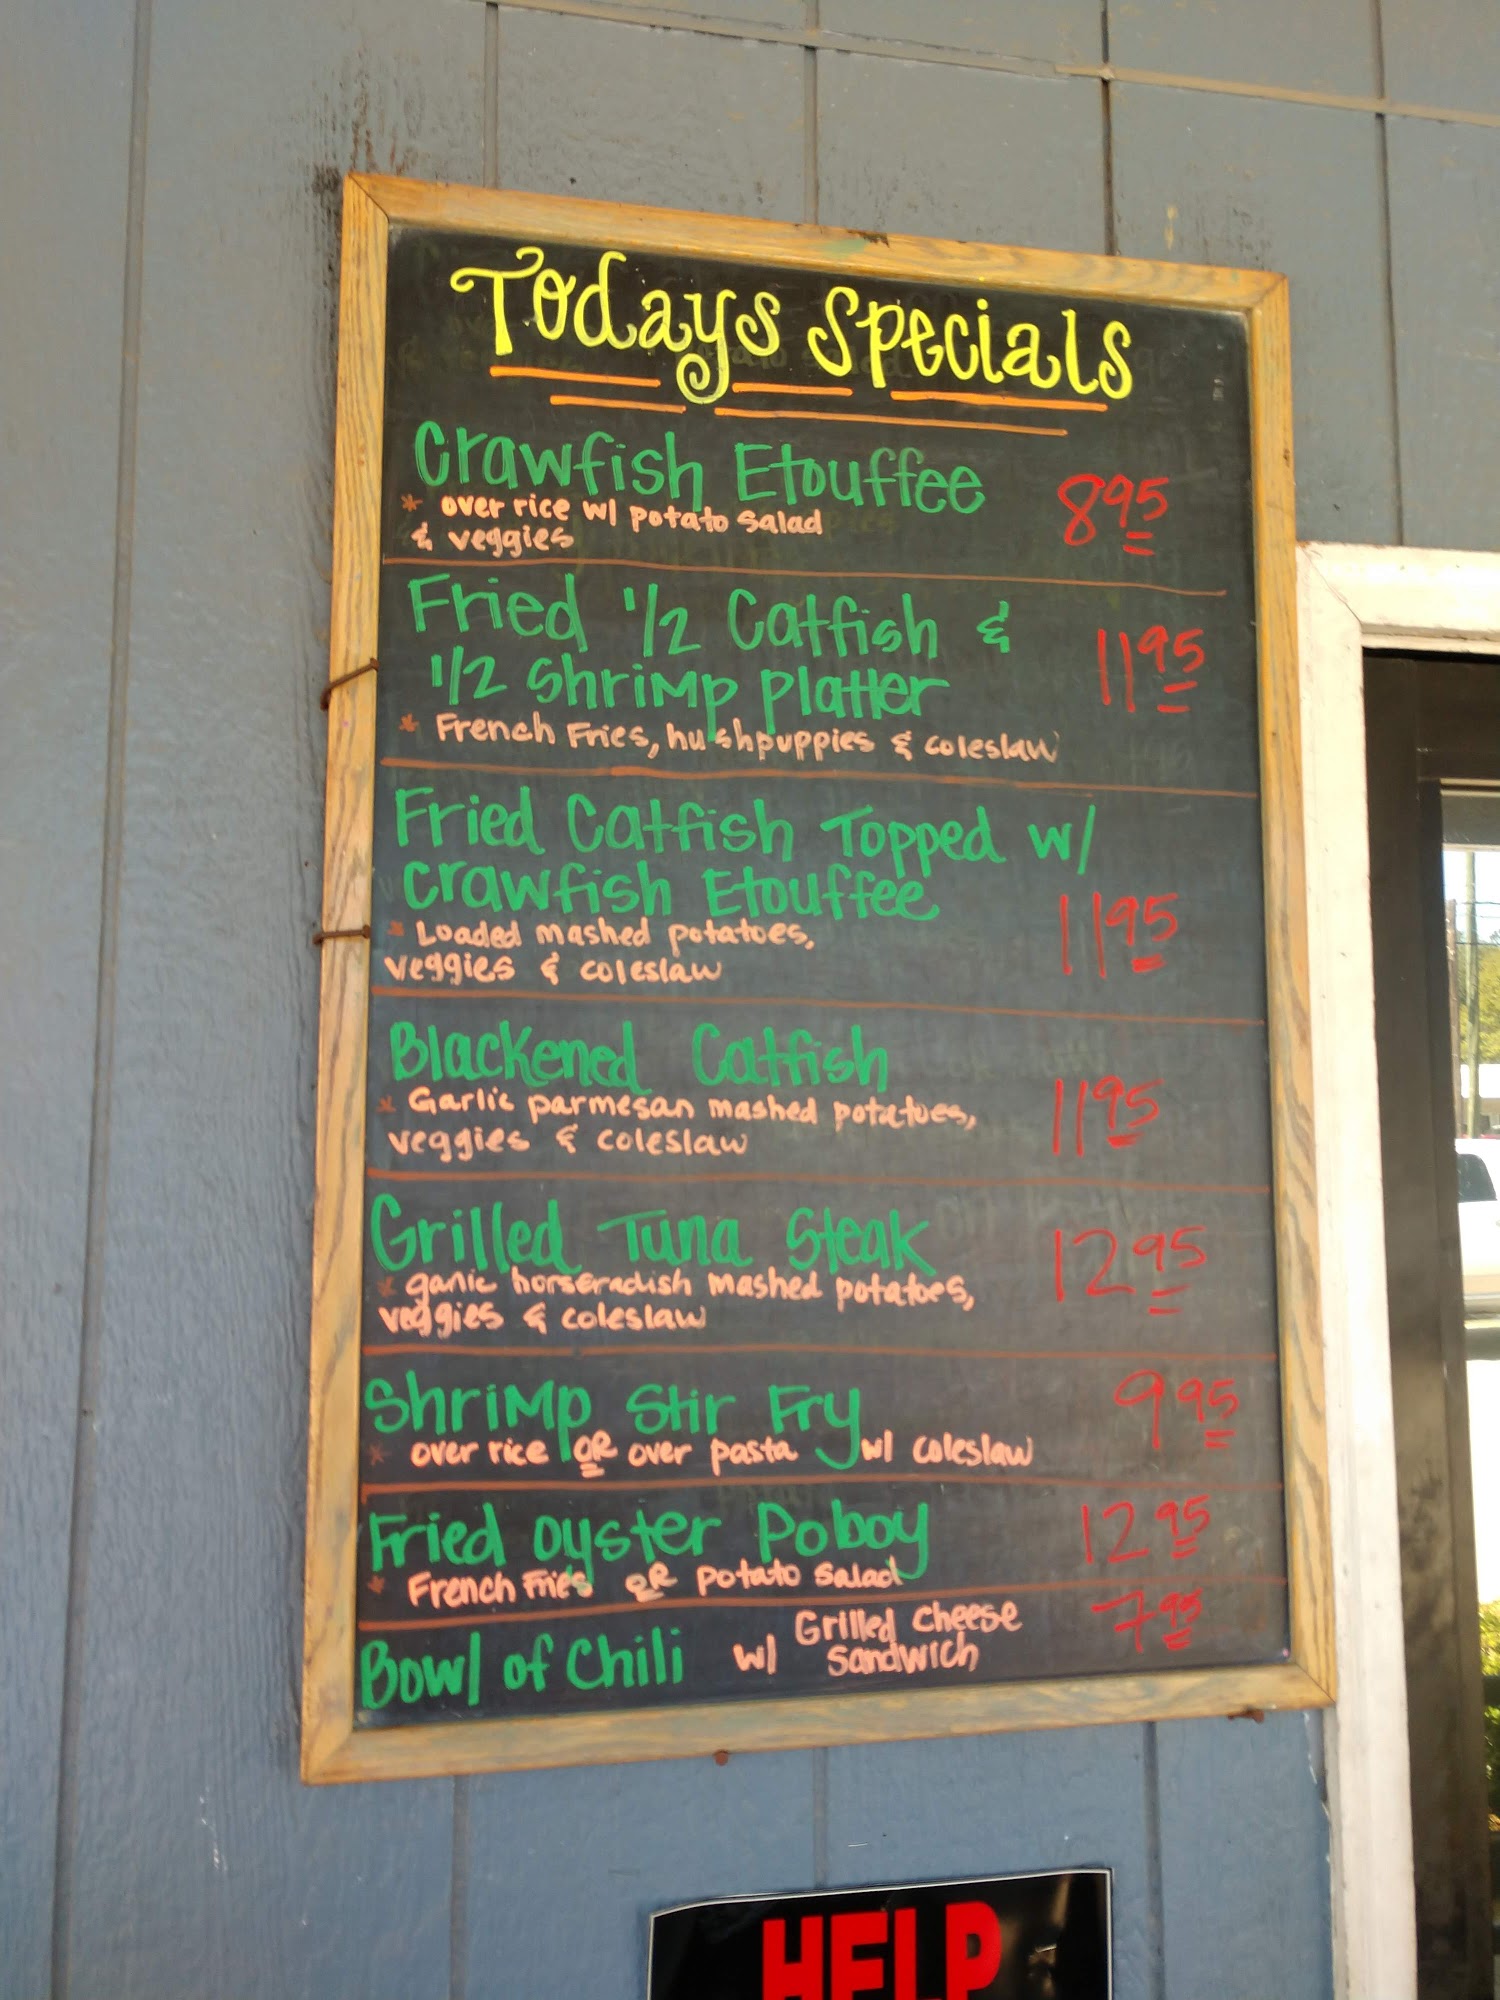 Todays Specials
Crawfish Etouffee 8 95
* over rice w/ potato salad
& veggies
Fried 1/2 Catfish &
1/2 Shrimp Platter 11 95
* French Fries, hushpuppies & coleslaw
Fried Catfish Topped w/
Crawfish Etouffee 11 95
* Loaded mashed potatoes,
veggies & coleslaw
Blackened Catfish
* Garlic parmesan mashed potatoes, 11 95
veggies & coleslaw
Grilled Tuna Steak 12 95
* garlic horseradish mashed potatoes,
veggies & coleslaw
Shrimp Stir Fry 9 95
* over rice OR over pasta w/ coleslaw
Fried Oyster Poboy 12 95
* French Fries OR potato salad
Bowl of Chili w/ Grilled Cheese 7 95
Sandwich
HELP